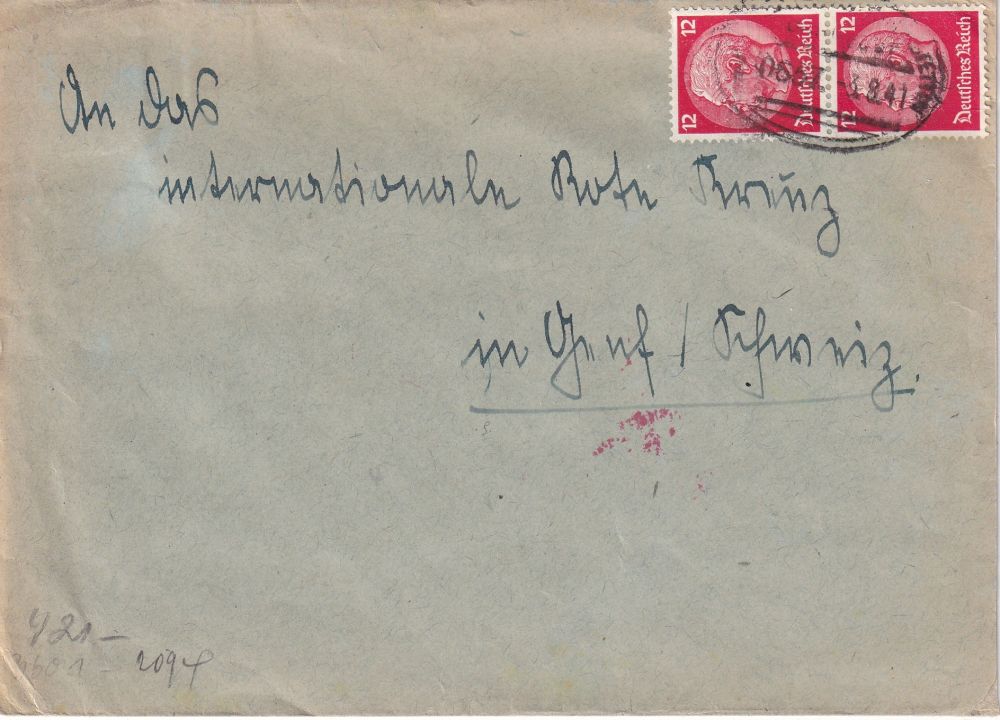 12 Deutsches Reich
12
12 Deutsches Reich
12
8.41
An das
internationale Rote Kreuz
in Genf / Schweiz.